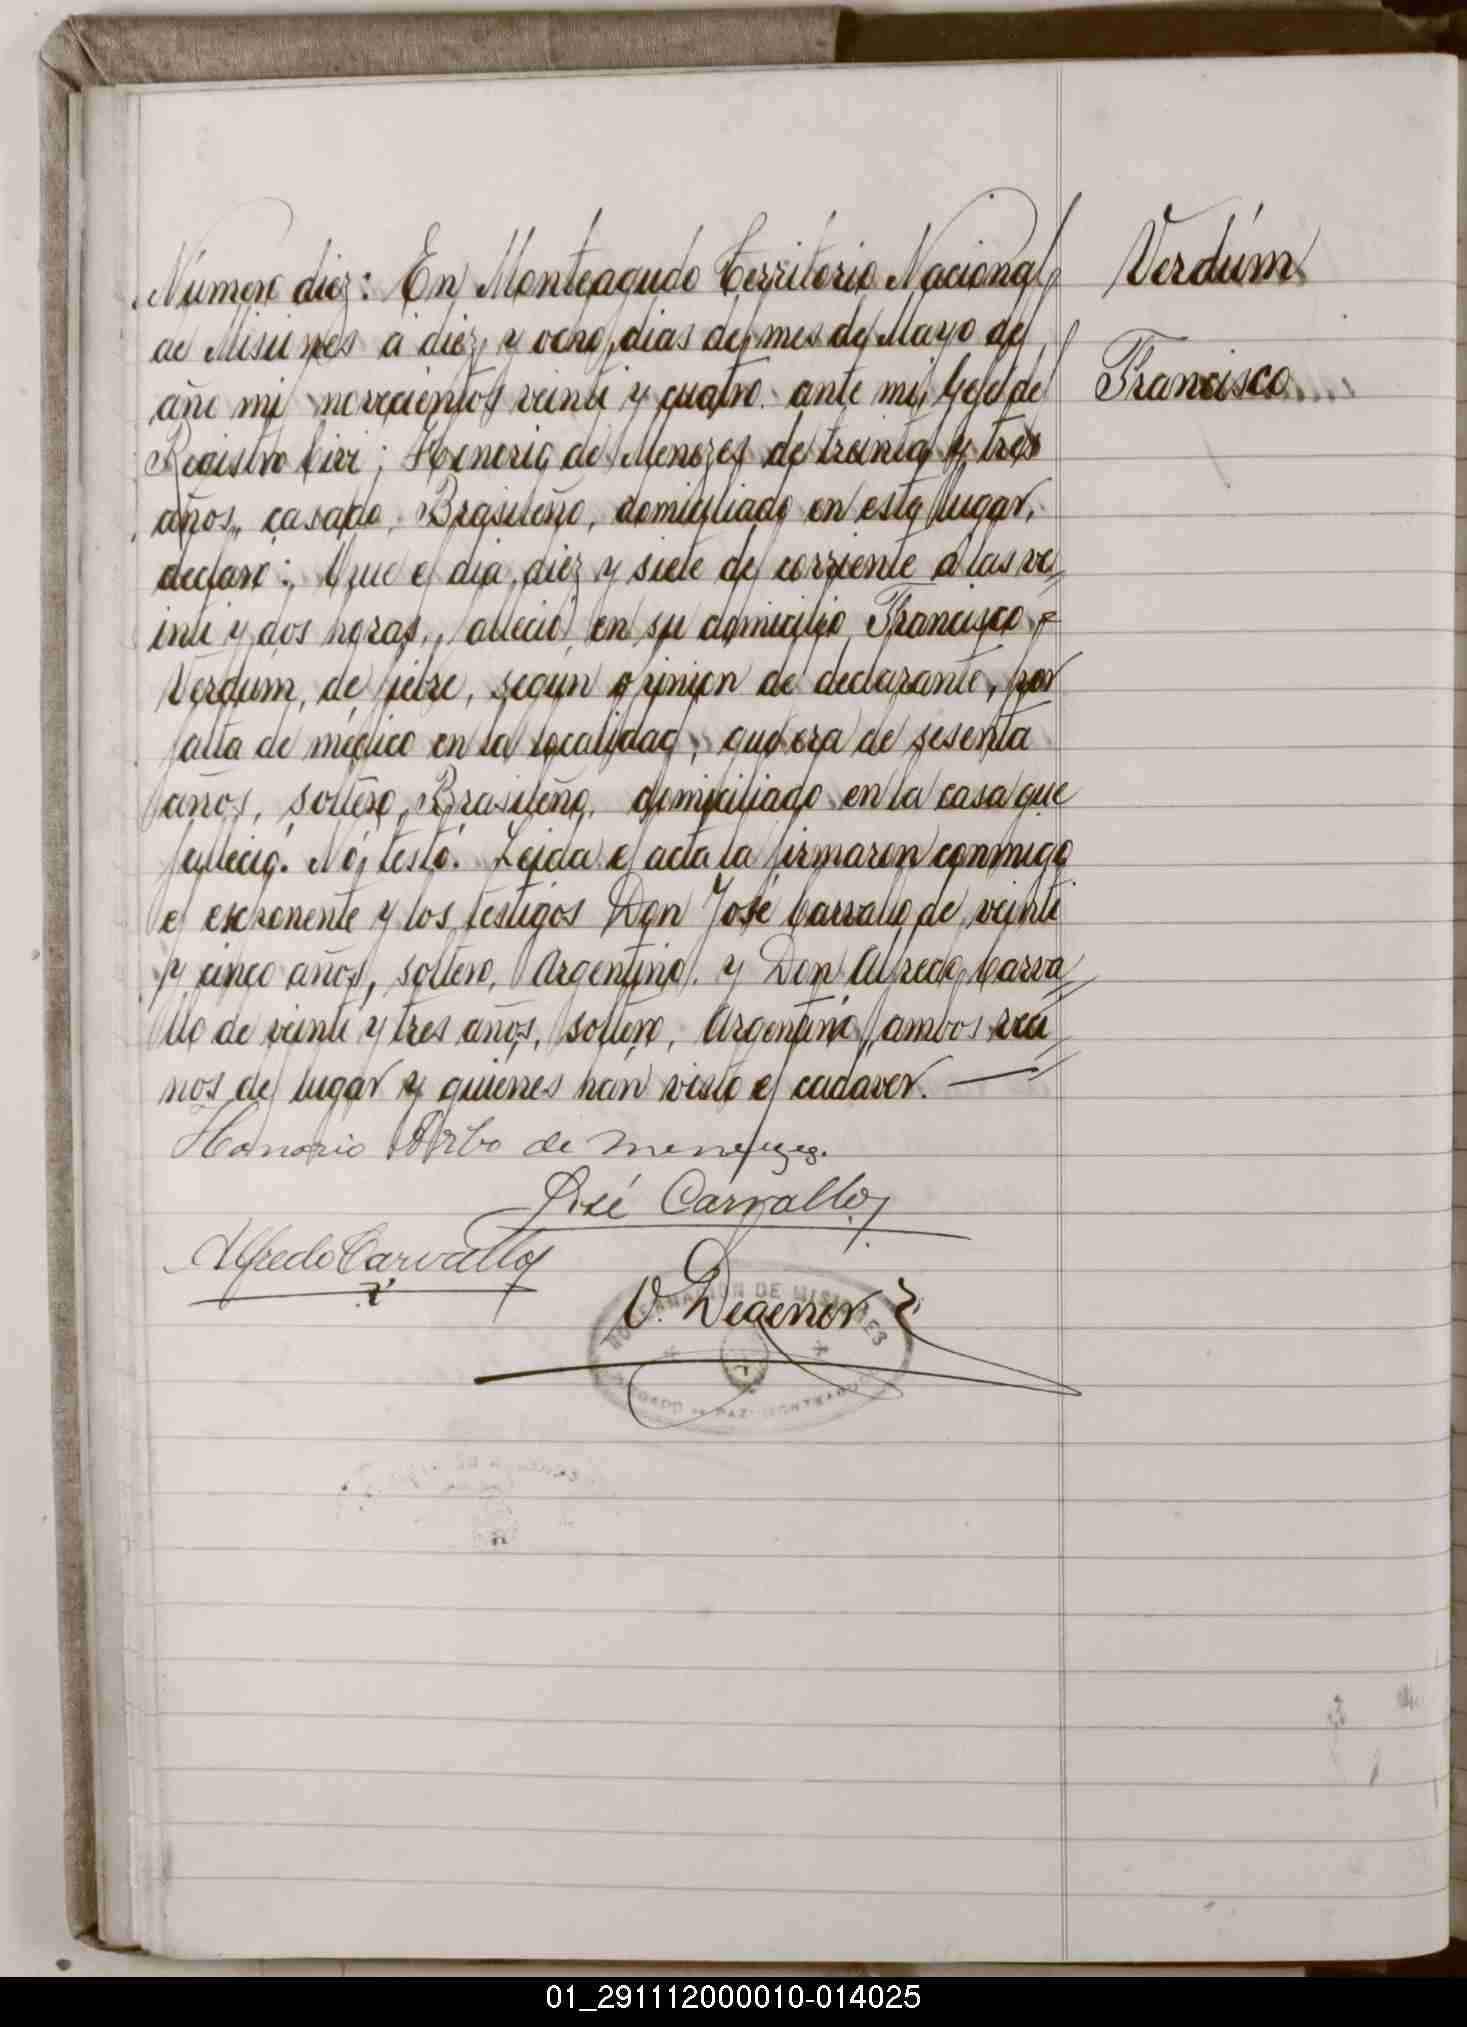 Número diez: En Monteagudo Territorio Nacional
de Misiones á diez y ocho dias del mes de Mayo del
año mil novecientos veinti y cuatro. ante mi, Gefe del
Registro Civil; Honorio de Menezes de treinta y tres
años, casado, Brasileño, domiciliado en este lugar,
declaró: Que el dia diez y siete del corriente á las ve
inti y dos horas, falleció en su domicilio Francisco
Verdúm, de fiebre, según opinion del declarante, por
falta de médico en la localidad, que era de sesenta
años, soltero, Brasileño, domiciliado en la casa que
falleció. Nó testó. Leida el acta la firmaron conmigo
el exponente y los testigos Don José Carvallo de veinti
y cinco años, soltero, Argentino, y Don Alfredo Carva
llo de veinti y tres años, soltero, Argentino, ambos veci
nos del lugar y quiénes han visto el cadaver.
Verdúm
Francisco
Honorio de Menezes.
José Carvallo
Alfredo Carvallo
V. Degener
GOBERNACION DE MISIONES
JUZGADO DE PAZ MONTEAGUDO
01_291112000010-014025